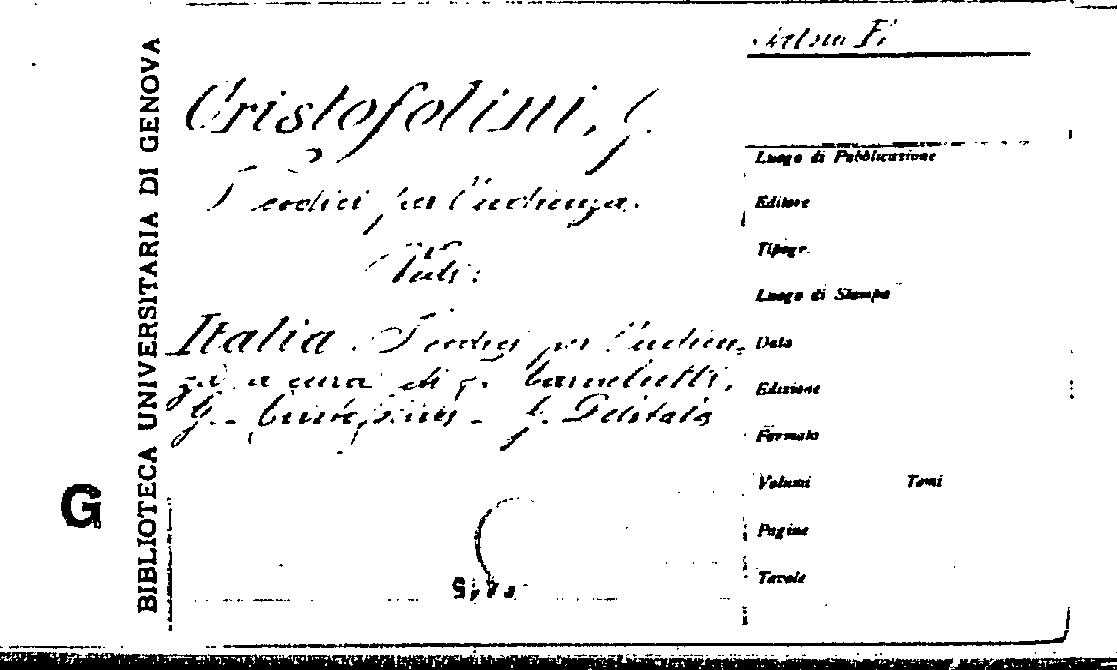 BIBLIOTECA UNIVERSITARIA DI GENOVA
G
Cristofolini, G.
I codici per l'udienza.
Vedi:
Italia. I codici per l'udien-
za a cura di F. Carnelutti,
G. Cristofolini - G. Delitala
Luogo di Pubblicazione
Editore
Tipogr.
Luogo di Stampa
Data
Edizione
Formato
Volumi Tomi
Pagine
Tavole